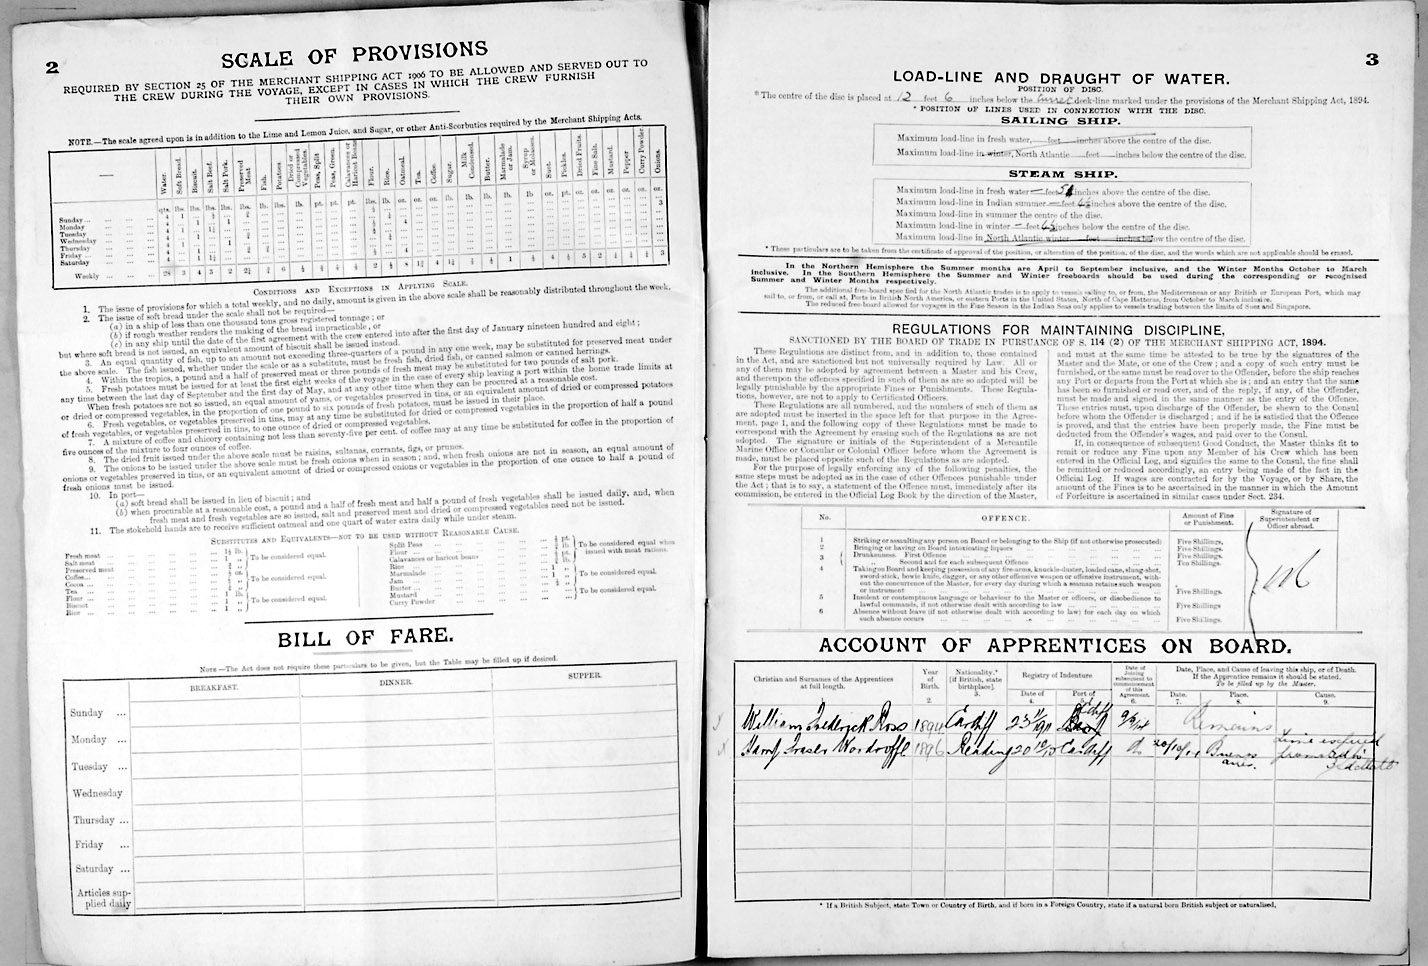 2
SCALE OF PROVISIONS
REQUIRED BY SECTION 25 OF THE MERCHANT SHIPPING ACT 1906 TO BE ALLOWED AND SERVED OUT TO
THE CREW DURING THE VOYAGE, EXCEPT IN CASES IN WHICH THE CREW FURNISH
THEIR OWN PROVISIONS.
NOTE.—The scale agreed upon is in addition to the Lime and Lemon Juice, and Sugar, or other Anti-Scorbutics required by the Merchant Shipping Acts.
Water. Soft Bread. Biscuit. Salt Beef. Salt Pork. Preserved Meat Fish. Potatoes. Dried or Compressed Vegetables. Peas, Split Peas, Green. Calavances or Haricot Beans Flour. Rice. Oatmeal. Tea. Coffee. Sugar. Milk Condensed. Butter. Marmalade or Jam. Syrup or Molasses. Suet. Pickles. Dried Fruits. Fine Salt. Mustard. Pepper Curry Powder. Onions.
Sunday
Monday
Tuesday
Wednesday
Thursday
Friday
Saturday
Weekly
CONDITIONS AND EXCEPTIONS IN APPLYING SCALE.
1. The issue of provisions for which a total weekly, and no daily, amount is given in the above scale shall be reasonably distributed throughout the week.
2. The issue of soft bread under the scale shall not be required—
(a) in a ship of less than one thousand tons gross registered tonnage; or
(b) if rough weather renders the making of the bread impracticable, or
(c) in any ship until the date of the first agreement with the crew entered into after the first day of January nineteen hundred and eight;
but where soft bread is not issued, an equivalent amount of biscuit shall be issued instead.
3. An equal quantity of fish, up to an amount not exceeding three-quarters of a pound in any one week, may be substituted for preserved meat under
the above scale. The fish issued, whether under the scale or as a substitute, must be fresh fish, dried fish, or canned salmon or canned herrings.
4. Within the tropics, a pound and a half of preserved meat or three pounds of fresh meat may be substituted for two pounds of salt pork.
5. Fresh potatoes must be issued for at least the first eight weeks of the voyage in the case of every ship leaving a port within the home trade limits at
any time between the last day of September and the first day of May, and at any other time when they can be procured at a reasonable cost.
When fresh potatoes are not so issued, an equal amount of yams, or vegetables preserved in tins, or an equivalent amount of dried or compressed potatoes
or dried or compressed vegetables, in the proportion of one pound to six pounds of fresh potatoes, must be issued in their place.
6. Fresh vegetables, or vegetables preserved in tins, may at any time be substituted for dried or compressed vegetables in the proportion of half a pound
of fresh vegetables, or vegetables preserved in tins, to one ounce of dried or compressed vegetables.
7. A mixture of coffee and chicory containing not less than seventy-five per cent. of coffee may at any time be substituted for coffee in the proportion of
five ounces of the mixture to four ounces of coffee.
8. The dried fruit issued under the above scale must be raisins, sultanas, currants, figs, or prunes.
9. The onions to be issued under the above scale must be fresh onions when in season; and, when fresh onions are not in season, an equal amount of
onions or vegetables preserved in tins, or an equivalent amount of dried or compressed onions or vegetables in the proportion of one ounce to half a pound of
fresh onions must be issued.
10. In port—
(a) soft bread shall be issued in lieu of biscuit; and
(b) when procurable at a reasonable cost, a pound and a half of fresh meat and half a pound of fresh vegetables shall be issued daily, and, when
fresh meat and fresh vegetables are so issued, salt and preserved meat and dried or compressed vegetables need not be issued.
11. The stokehold hands are to receive sufficient oatmeal and one quart of water extra daily while under steam.
SUBSTITUTES AND EQUIVALENTS—NOT TO BE USED WITHOUT REASONABLE CAUSE.
Fresh meat
Salt meat To be considered equal.
Preserved meat
Coffee
Cocoa To be considered equal.
Tea
Flour
Biscuit To be considered equal.
Rice
Split Peas
Flour To be considered equal when
Calavances or haricot beans issued with meat rations.
Rice
Marmalade
Jam To be considered equal.
Butter
Mustard To be considered equal.
Curry Powder
BILL OF FARE.
NOTE.—The Act does not require these particulars to be given, but the Table may be filled up if desired.
BREAKFAST. DINNER. SUPPER.
Sunday ...
Monday ...
Tuesday ...
Wednesday
Thursday ...
Friday ...
Saturday ...
Articles sup-
plied daily
3
LOAD-LINE AND DRAUGHT OF WATER.
POSITION OF DISC.
*The centre of the disc is placed at 12 feet 6 inches below the deck-line marked under the provisions of the Merchant Shipping Act, 1894.
* POSITION OF LINES USED IN CONNECTION WITH THE DISC.
SAILING SHIP.
Maximum load-line in fresh water, feet inches above the centre of the disc.
Maximum load-line in winter, North Atlantic feet inches below the centre of the disc.
STEAM SHIP.
Maximum load-line in fresh water feet inches above the centre of the disc.
Maximum load-line in Indian summer feet inches above the centre of the disc.
Maximum load-line in summer the centre of the disc.
Maximum load-line in winter feet inches below the centre of the disc.
Maximum load-line in North Atlantic winter feet inches below the centre of the disc.
* These particulars are to be taken from the certificate of approval of the position, or alteration of the position, of the disc, and the words which are not applicable should be erased.
In the Northern Hemisphere the Summer months are April to September inclusive, and the Winter Months October to March
inclusive. In the Southern Hemisphere the Summer and Winter freeboards should be used during the corresponding or recognised
Summer and Winter Months respectively.
The additional free-board specified for the North Atlantic trades is to apply to vessels sailing to, or from, the Mediterranean or any British or European Port, which may
sail to, or from, or call at, Ports in British North America, or eastern Ports in the United States, North of Cape Hatteras, from October to March inclusive.
The reduced free-board allowed for voyages in the Fine Season in the Indian Seas only applies to vessels trading between the limits of Suez and Singapore.
REGULATIONS FOR MAINTAINING DISCIPLINE,
SANCTIONED BY THE BOARD OF TRADE IN PURSUANCE OF S. 114 (2) OF THE MERCHANT SHIPPING ACT, 1894.
These Regulations are distinct from, and in addition to, those contained
in the Act, and are sanctioned but not universally required by Law. All or
any of them may be adopted by agreement between a Master and his Crew,
and thereupon the offences specified in such of them as are so adopted will be
legally punishable by the appropriate Fines or Punishments. These Regula-
tions, however, are not to apply to Certificated Officers.
These Regulations are all numbered, and the numbers of such of them as
are adopted must be inserted in the space left for that purpose in the Agree-
ment, page 1, and the following copy of these Regulations must be made to
correspond with the Agreement by erasing such of the Regulations as are not
adopted. The signature or initials of the Superintendent of a Mercantile
Marine Office or Consular or Colonial Officer before whom the Agreement is
made, must be placed opposite such of the Regulations as are adopted.
For the purpose of legally enforcing any of the following penalties, the
same steps must be adopted as in the case of other Offences punishable under
the Act; that is to say, a statement of the Offence must, immediately after its
commission, be entered in the Official Log Book by the direction of the Master,
and must at the same time be attested to be true by the signatures of the
Master and the Mate, or one of the Crew; and a copy of such entry must be
furnished, or the same must be read over to the Offender, before the ship reaches
any Port or departs from the Port at which she is; and an entry that the same
has been so furnished or read over, and of the reply, if any, of the Offender,
must be made and signed in the same manner as the entry of the Offence.
These entries must, upon discharge of the Offender, be shewn to the Consul
before whom the Offender is discharged; and if he is satisfied that the Offence
is proved, and that the entries have been properly made, the Fine must be
deducted from the Offender's wages, and paid over to the Consul.
If, in consequence of subsequent Good Conduct, the Master thinks fit to
remit or reduce any Fine upon any Member of his Crew which has been
entered in the Official Log, and signifies the same to the Consul, the fine shall
be remitted or reduced accordingly, an entry being made of the fact in the
Official Log. If wages are contracted for by the Voyage, or by Share, the
amount of the Fines is to be ascertained in the manner in which the Amount
of Forfeiture is ascertained in similar cases under Sect. 234.
No. OFFENCE. Amount of Fine or Punishment. Signature of Superintendent or Officer abroad.
1 Striking or assaulting any person on Board or belonging to the Ship (if not otherwise prosecuted) Five Shillings.
2 Bringing or having on Board intoxicating liquors Five Shillings.
3 Drunkenness. First Offence Five Shillings.
Second and for each subsequent Offence Ten Shillings.
4 Taking on Board and keeping possession of any fire-arms, knuckle-duster, loaded cane, slung-shot,
sword-stick, bowie knife, dagger, or any other offensive weapon or offensive instrument, with-
out the concurrence of the Master, for every day during which a seaman retains such weapon
or instrument Five Shillings.
5 Insolent or contemptuous language or behaviour to the Master or officers, or disobedience to
lawful commands, if not otherwise dealt with according to law Five Shillings
6 Absence without leave (if not otherwise dealt with according to law) for each day on which
such absence occurs Five Shillings.
ACCOUNT OF APPRENTICES ON BOARD.
Christian and Surnames of the Apprentices at full length. Year of Birth. Nationality.* [if British, state birthplace]. Registry of Indenture Date of Port of Date of Joining subsequent to commencement of this Agreement. Date, Place, and Cause of leaving this ship, or of Death. If the Apprentice remains it should be stated. To be filled up by the Master. Date. Place. Cause.
2. 3. 4. 6. 7. 8. 9.
William Frederick Ross 1894 Cardiff Cardiff Remains
1896 Reading Cardiff Buenos aires. time expired
* If a British Subject, state Town or Country of Birth, and if born in a Foreign Country, state if a natural born British subject or naturalised.